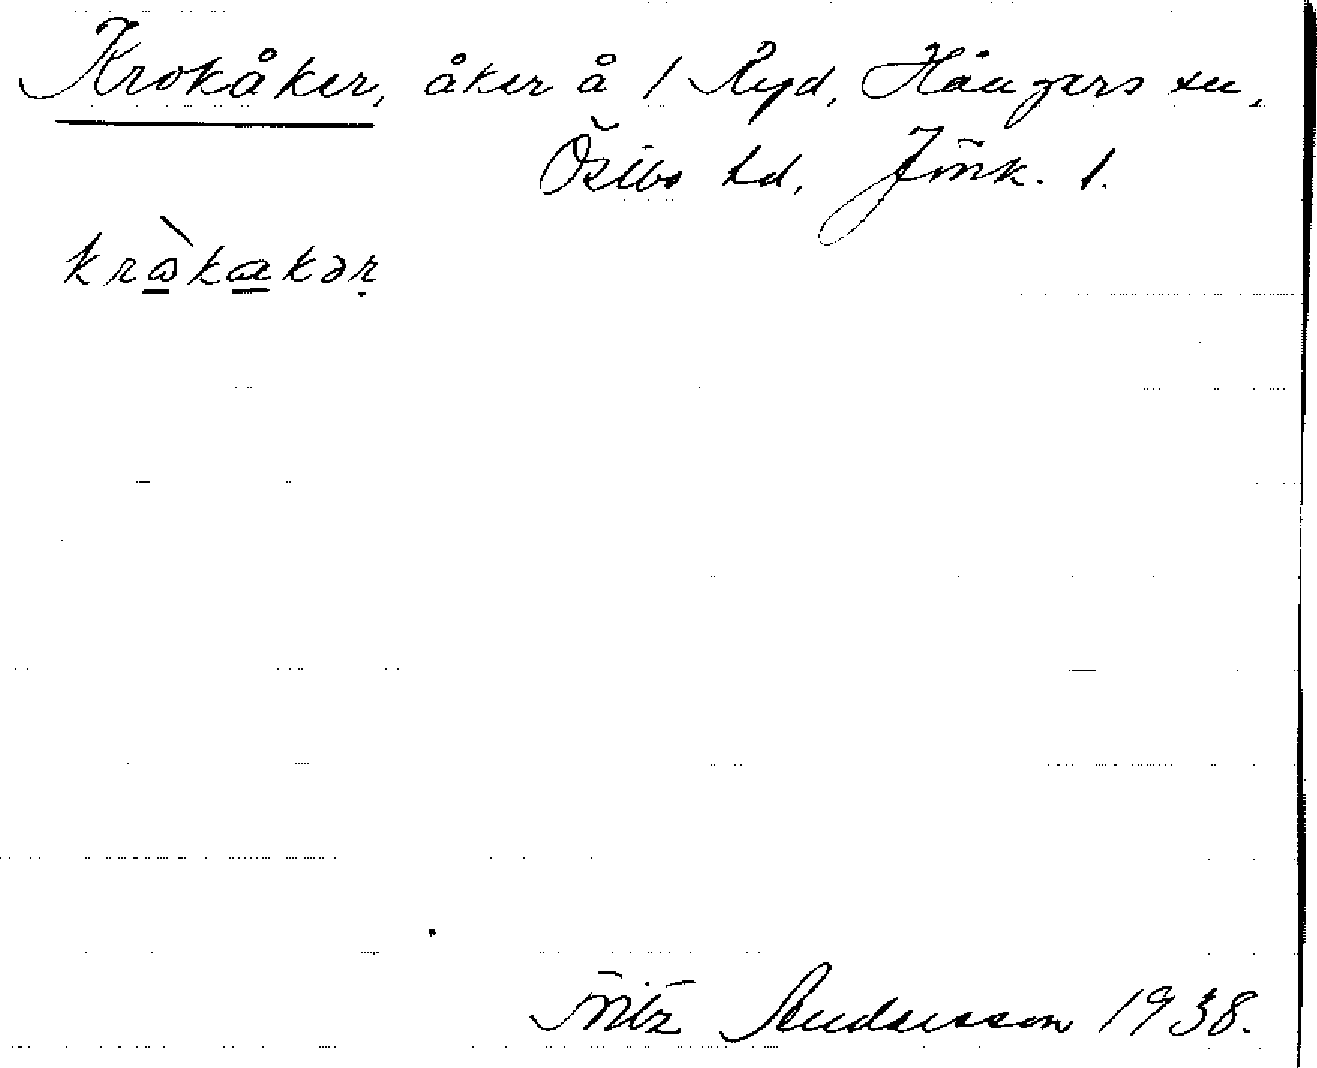 Krokåker, åker å 1 Ryd, Hångers sn,
Östbo hd, Jönk. l.
kràkakər
Fritz Andersson 1938.